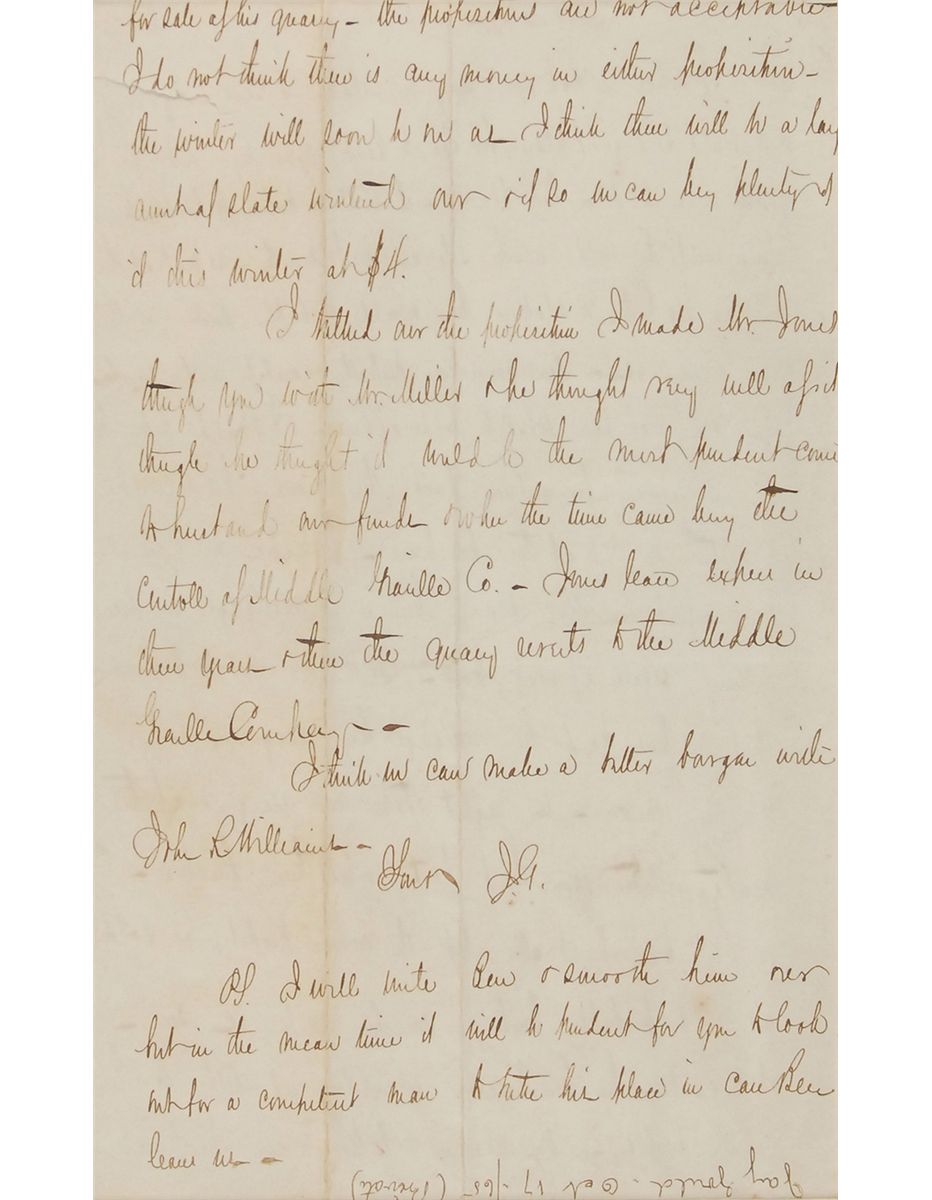 for sale of his quarry - the propositions are not acceptable
I do not think there is any money in either proposition -
the winter will soon be on as I think there will be a large
amt of slate wintered over & if so we can buy plenty of
it this winter at $4.
I talked over the proposition I made Mr. Jones
though you with Mr. Miller & he thought very well of it
though he thought it would be the most prudent course
to husband our funds & when the time came buy the
Controll of Middle Granville Co. - Jones lease expires in
three years & then the quarry reverts to the Middle
Granville Company -
I think we can make a better bargain with
John R Williams -
Yours J.G.
P.S. I will write Ben & smooth him over
but in the mean time it will be prudent for you to look
out for a competent man to take his place in case Ben
leaves us -
Jay Gould - Oct 17 /65 (Private)